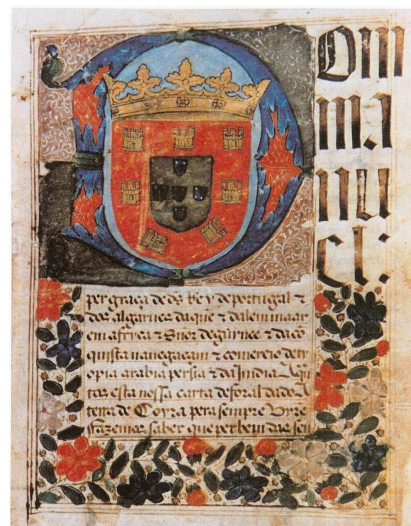 Dom
ma
nu
el:
per graça de ds Rey de portugal &
dos algarues daque & dalem maar
em africa & Snõr de guinee &
quista nauegaçam & comercio de
opia arabia persia & da India
esta nossa carta de foral dado
terra de Coyra pera sempre
fazemos saber que per bem das sen